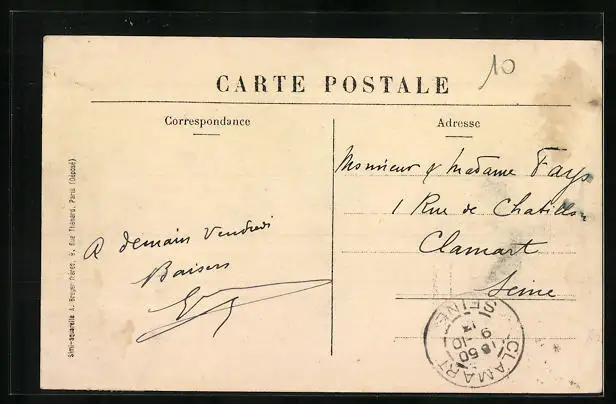 10
CARTE POSTALE
Correspondance
Adresse
Monsieur & Madame Fays
1 Rue de Chatillon
Clamart
Seine
A demain Vendredi
Baisers
CLAMART
SEINE
18 50
9 -10
Simi-aquarelle A. Breger frères, 9, Rue Thénard, Paris (Déposé)